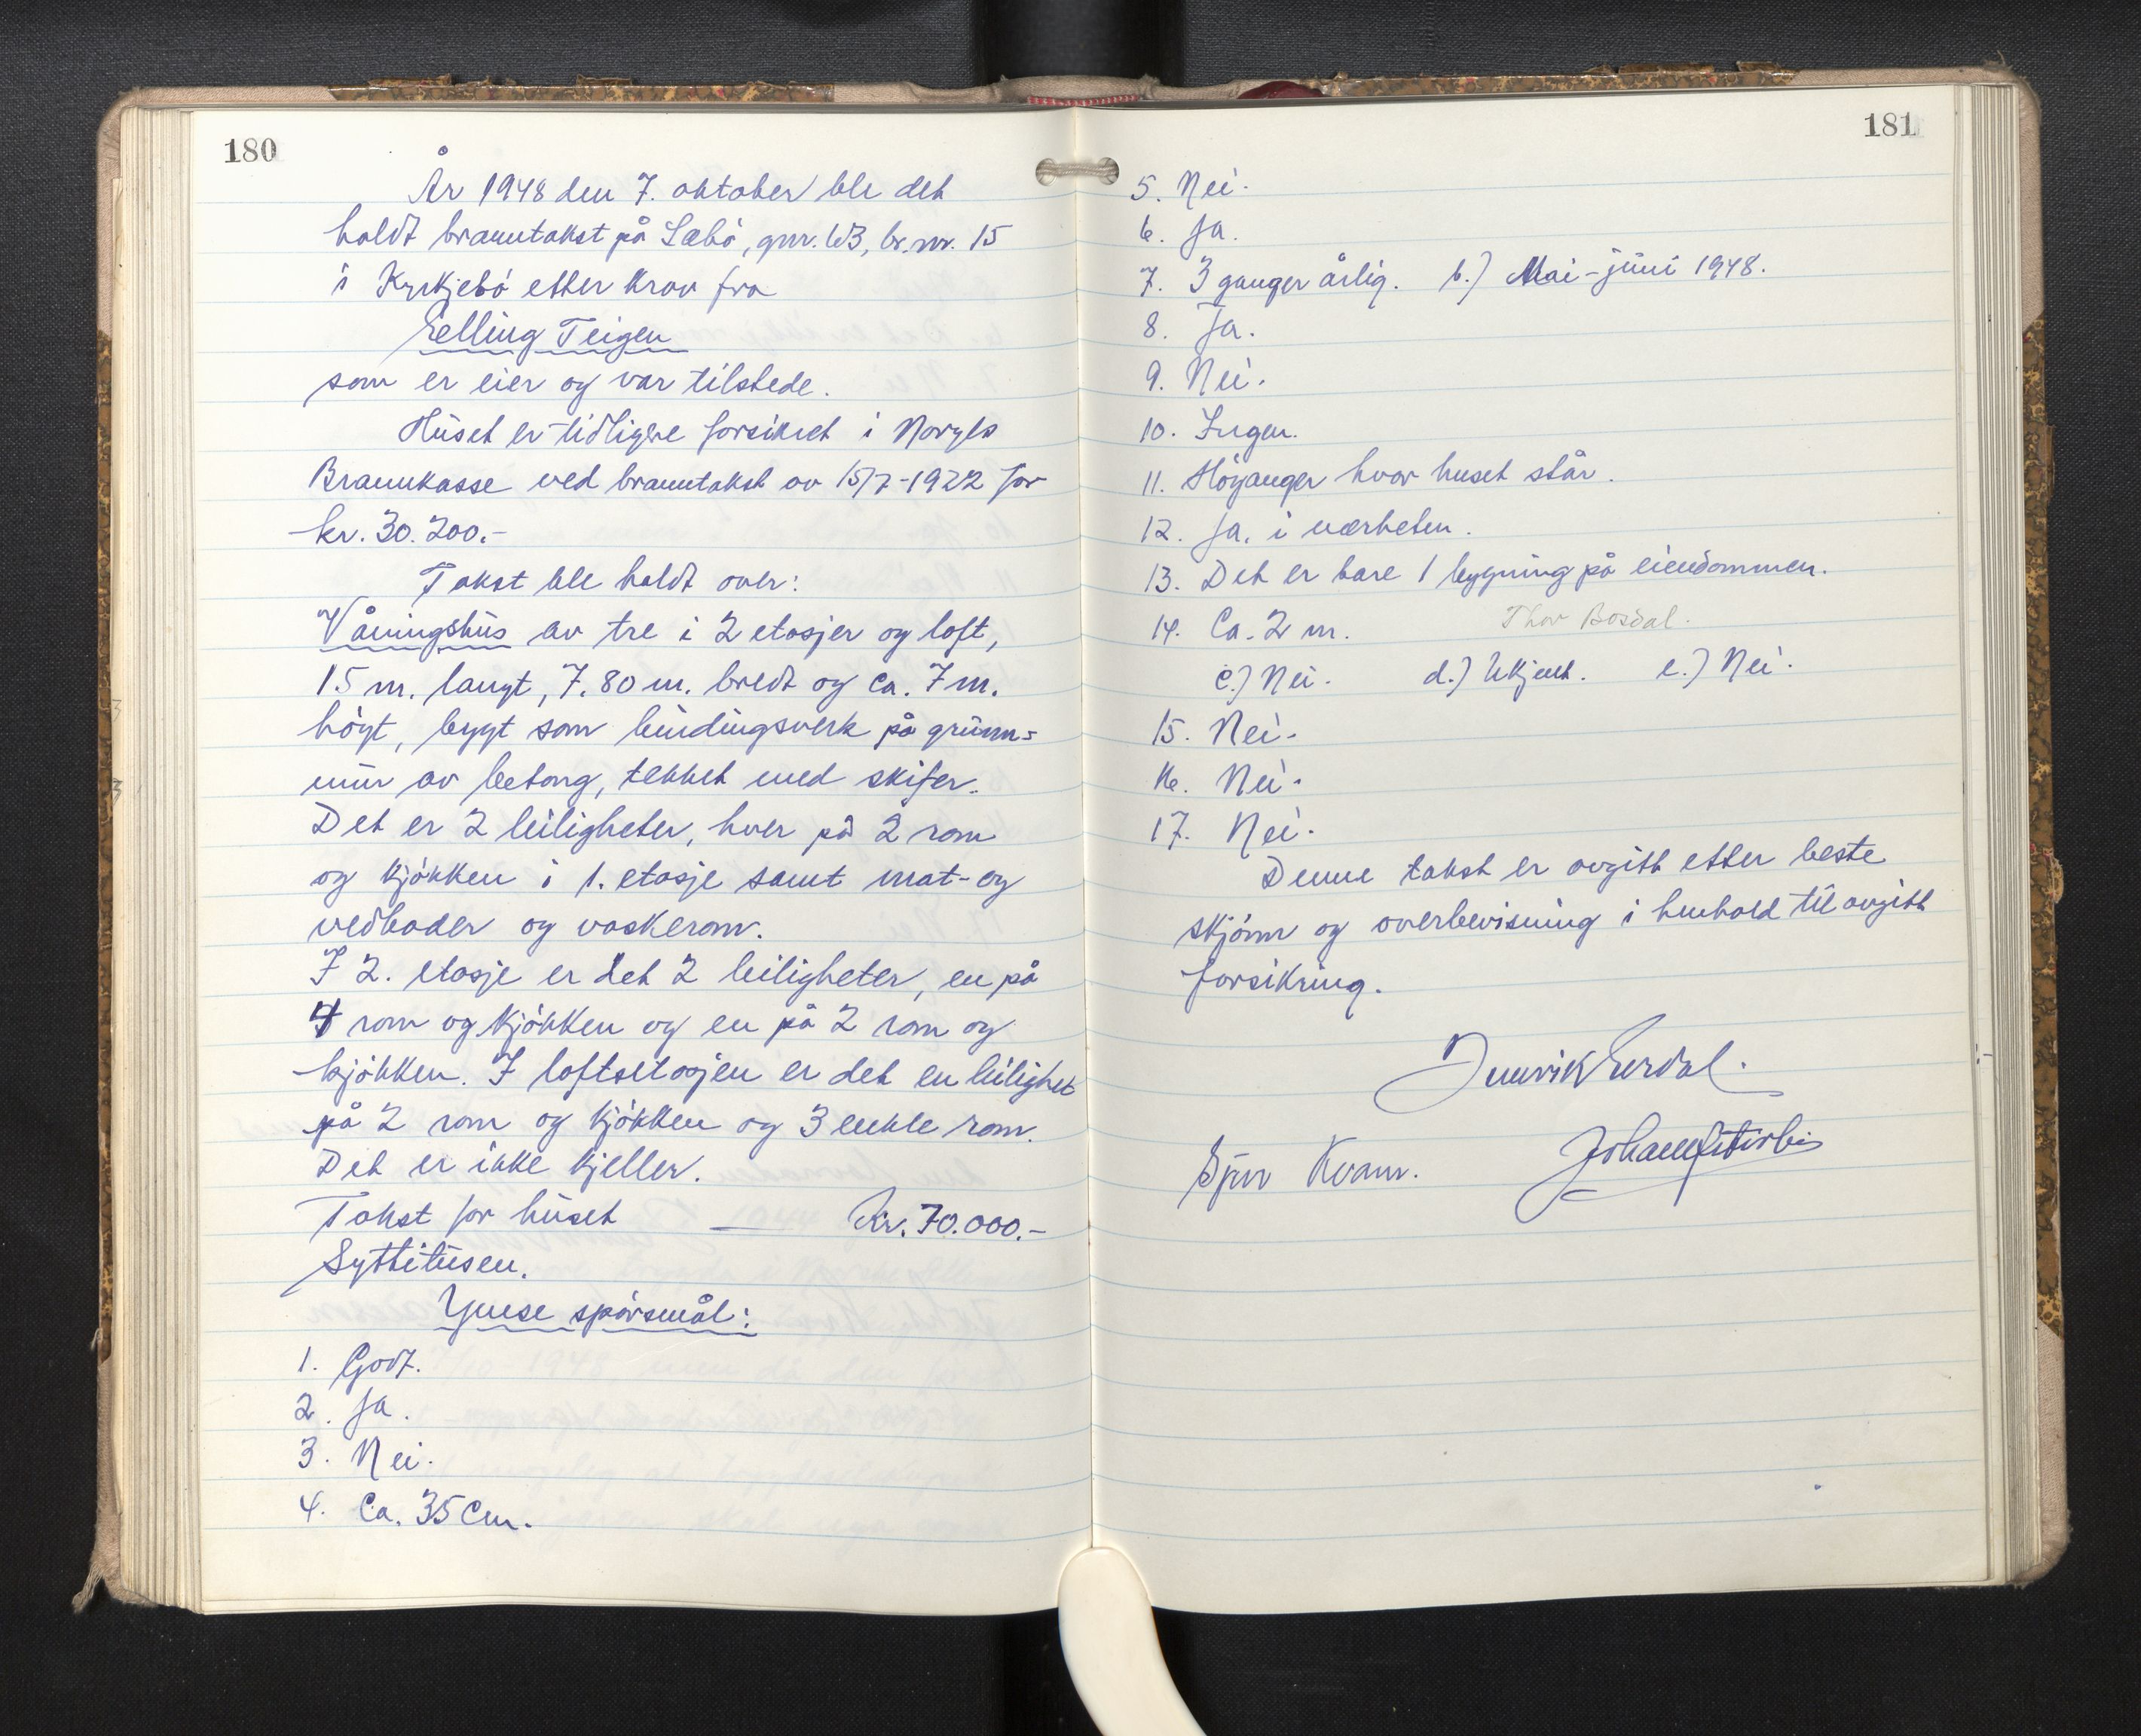 180
År 1948 den 7. oktober ble det
holdt branntakst på Sæbö, gnr. 63, br. nr. 15
i Kyrkjebö etter krav fra
Elling Teigen
som er eier og var tilstede.
Huset er tidligere forsikret i Norges
Brannkasse ved branntakst av 15/7-1922 for
kr. 30.200.-
Takst ble holdt over:
Våningshus av tre i 2 etasjer og loft,
15 m. langt, 7.80 m. bredt og ca. 7 m.
högt, bygt som bindingsverk på grunn=
mur av betong, tekket med skifer.
Det er 2 leiligheter, hver på 2 rom
og kjökken i 1. etasje samt mat- og
vedboder og vaskerom.
I 2. etasje er det 2 leiligheter, en på
4 rom og kjökken og en på 2 rom og
kjökken. I loftsetasjen er det en leilighet
på 2 rom og kjökken og 3 enkle rom.
Det er ikke kjeller.
Takst for huset — Kr. 70.000.-
Syttitusen.
Ymse spörsmål:
1. Godt.
2. Ja.
3. Nei.
4. Ca. 35 Cm.
181
5. Nei.
6. Ja.
7. 3 ganger årlig. b.) Mai-juni 1948.
8. Ja.
9. Nei.
10. Ingen.
11. Höyanger hvor huset står.
12. Ja, i nærheten.
13. Det er bare 1 bygning på eiendommen.
14. Ca. 2 m. Thor Bosdal.
c.) Nei. d.) Ukjent. e.) Nei.
15. Nei.
16. Nei.
17. Nei.
Denne takst er avgitt etter beste
skjönn og overbevisning i henhold til avgitt
forsikring.
Kvam.